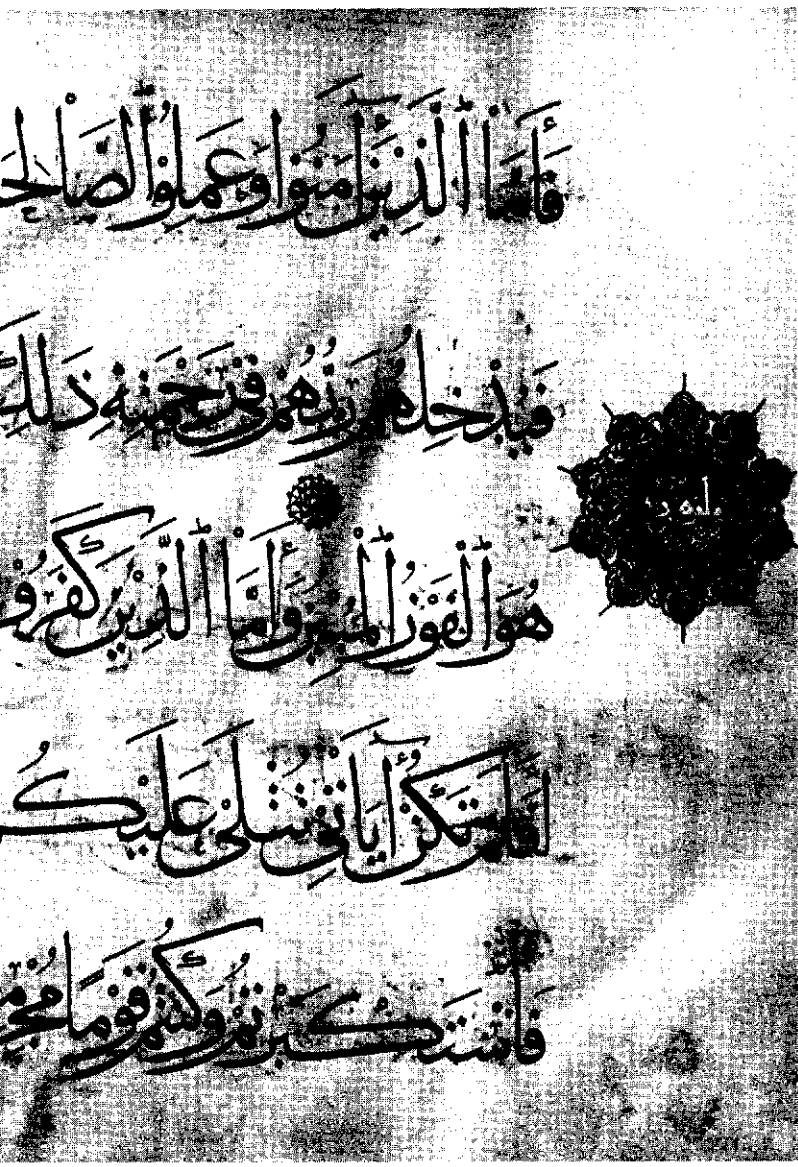 فَأَمَّا ٱلَّذِينَ آمَنُوا وَعَمِلُوا ٱلصَّالِحَا
فَيُدْخِلُهُمْ رَبُّهُمْ فِي رَحْمَتِهِ ذَلِكَ
هُوَ ٱلْفَوْزُ ٱلْمُبِينُ وَأَمَّا ٱلَّذِينَ كَفَرُوا
أَفَلَمْ تَكُنْ آيَاتِي تُتْلَى عَلَيْكُمْ
فَٱسْتَكْبَرْتُمْ وَكُنْتُمْ قَوْمًا